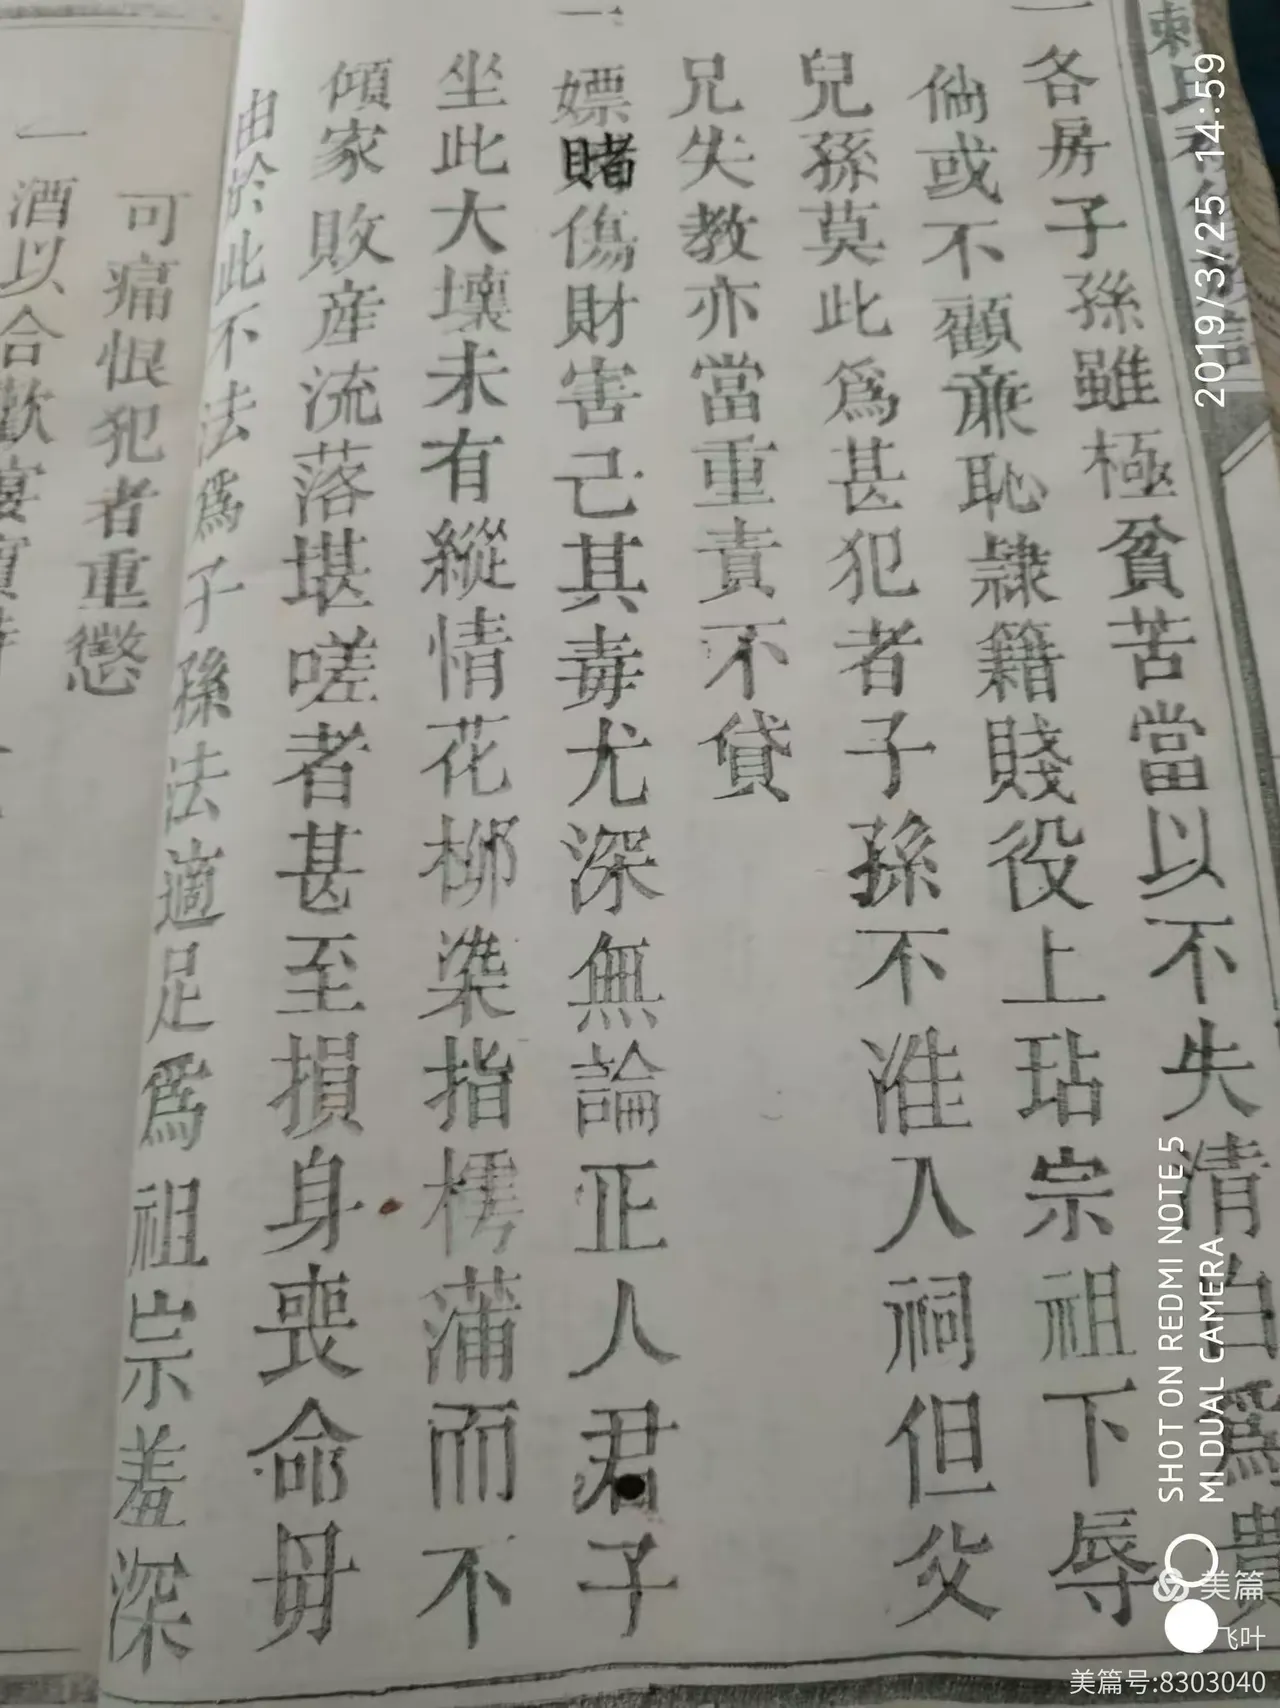 一各房子孫雖極貧苦當以不失清白為貴
倘或不顧亷恥隷籍賤役上玷宗祖下辱
兒孫莫此為甚犯者子孫不准入祠但父
兄失教亦當重責不貸
一嫖賭傷財害己其毒尤深無論正人君子
坐此大壞未有縱情花柳染指樗蒲而不
傾家敗産流落堪嗟者甚至損身喪命毋
由於此不法為子孫法適足為祖宗羞深
可痛恨犯者重懲
一酒以合歡宴
2019/3/25 14:59
SHOT ON REDMI NOTE 5
MI DUAL CAMERA
美篇
飞叶
美篇号:8303040